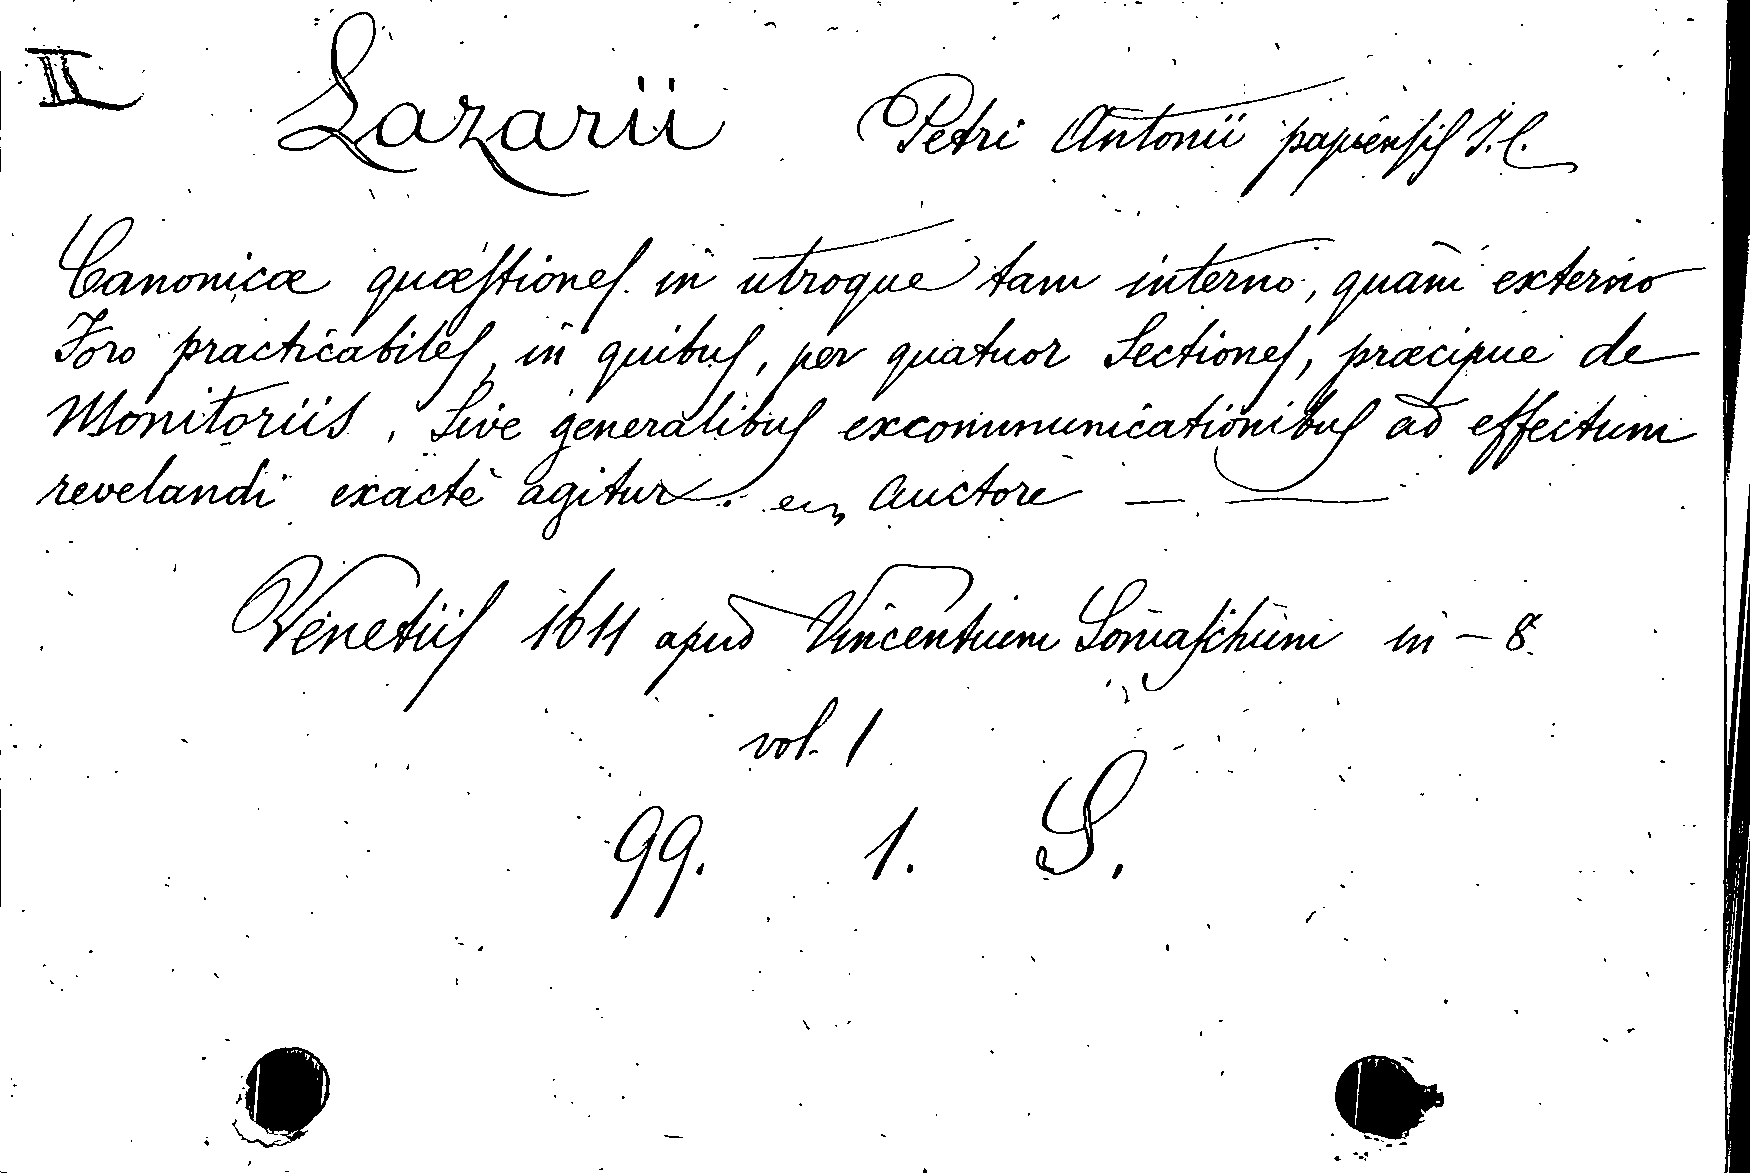 II
Lazarii Petri Antonii papiensis J.C.
Canonicæ quæstiones in utroque tam interno, quam externo
Foro practicabiles, in quibus, per quatuor Sectiones, præcipue de
Monitoriis, Sive generalibus excommunicationibus ad effectum
revelandi exactè agitur. Auctore — —
Venetiis 1611 apud Vincentium Somaschum in-8.
vol. 1
99. 1. S.